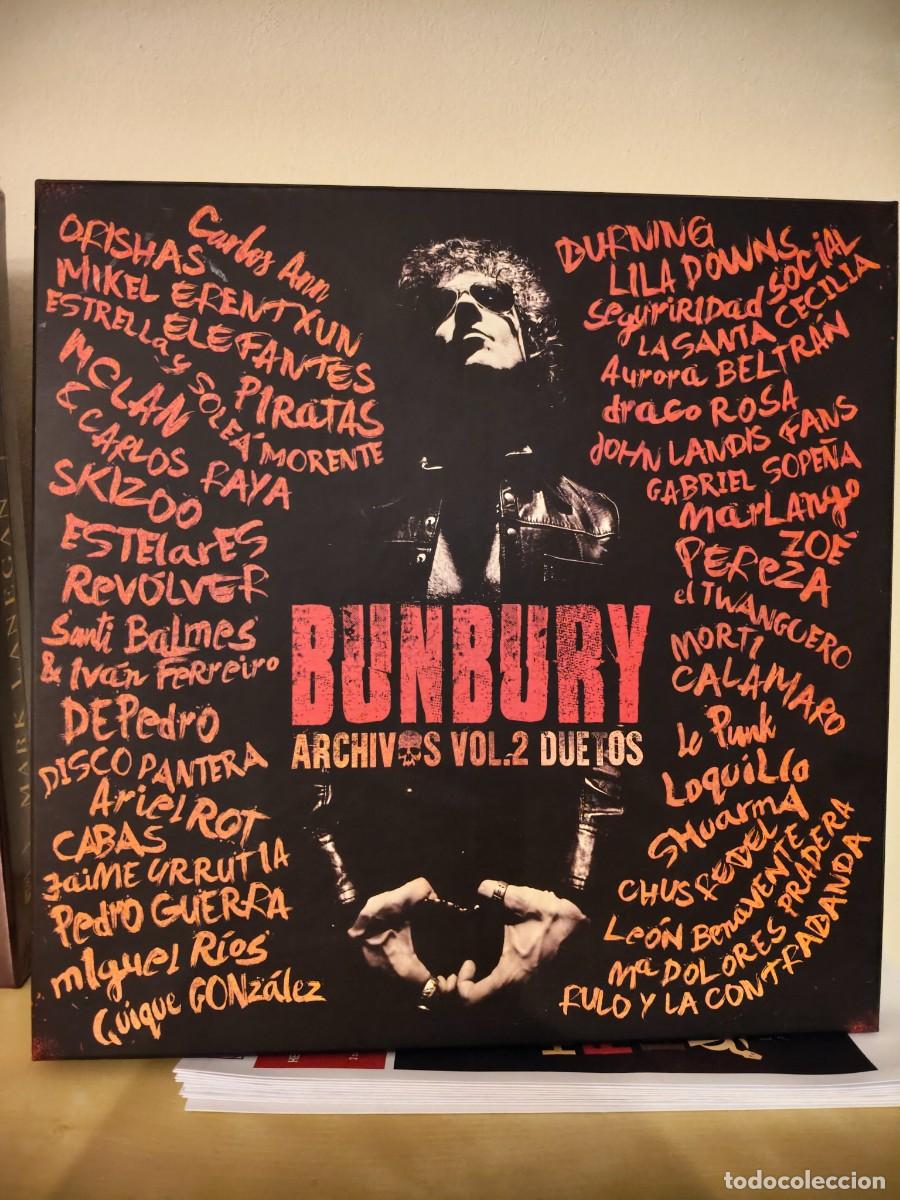 Carlos Ann
ORISHAS
MIKEL ERENTXUN
ELEFANTES
ESTRELLA y SOLEÁ MORENTE
PIRATAS
MCLAN
& CARLOS RAYA
SKIZOO
ESTELARES
REVÓLVER
Santi Balmes
& Iván Ferreiro
DEPedro
DISCO PANTERA
Ariel ROT
CABAS
JAIME URRUTIA
Pedro GUERRA
Miguel Ríos
Quique GONzález
BUNBURY
ARCHIVOS VOL.2 DUETOS
BURNING
LILA DOWNS
Seguriridad SOCIAL
LA SANTA CECILIA
Aurora BELTRÁN
draco ROSA
JOHN LANDIS FANS
GABRIEL SOPEÑA
MarLango
ZOÉ
PEREZA
el TWANGUERO
MORTI
CALAMARO
Le Punk
LOQUILLO
SHUARMA
CHUS REDEL
LEÓN BENAVENTE
Mª DOLORES PRADERA
RULO Y LA CONTRABANDA
MARK LANEGAN
todocoleccion